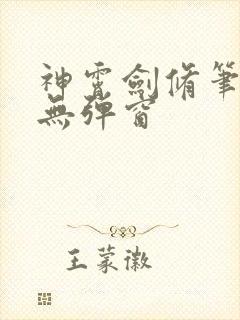 神霄劍脩筆
無彈窗
王蒙徽